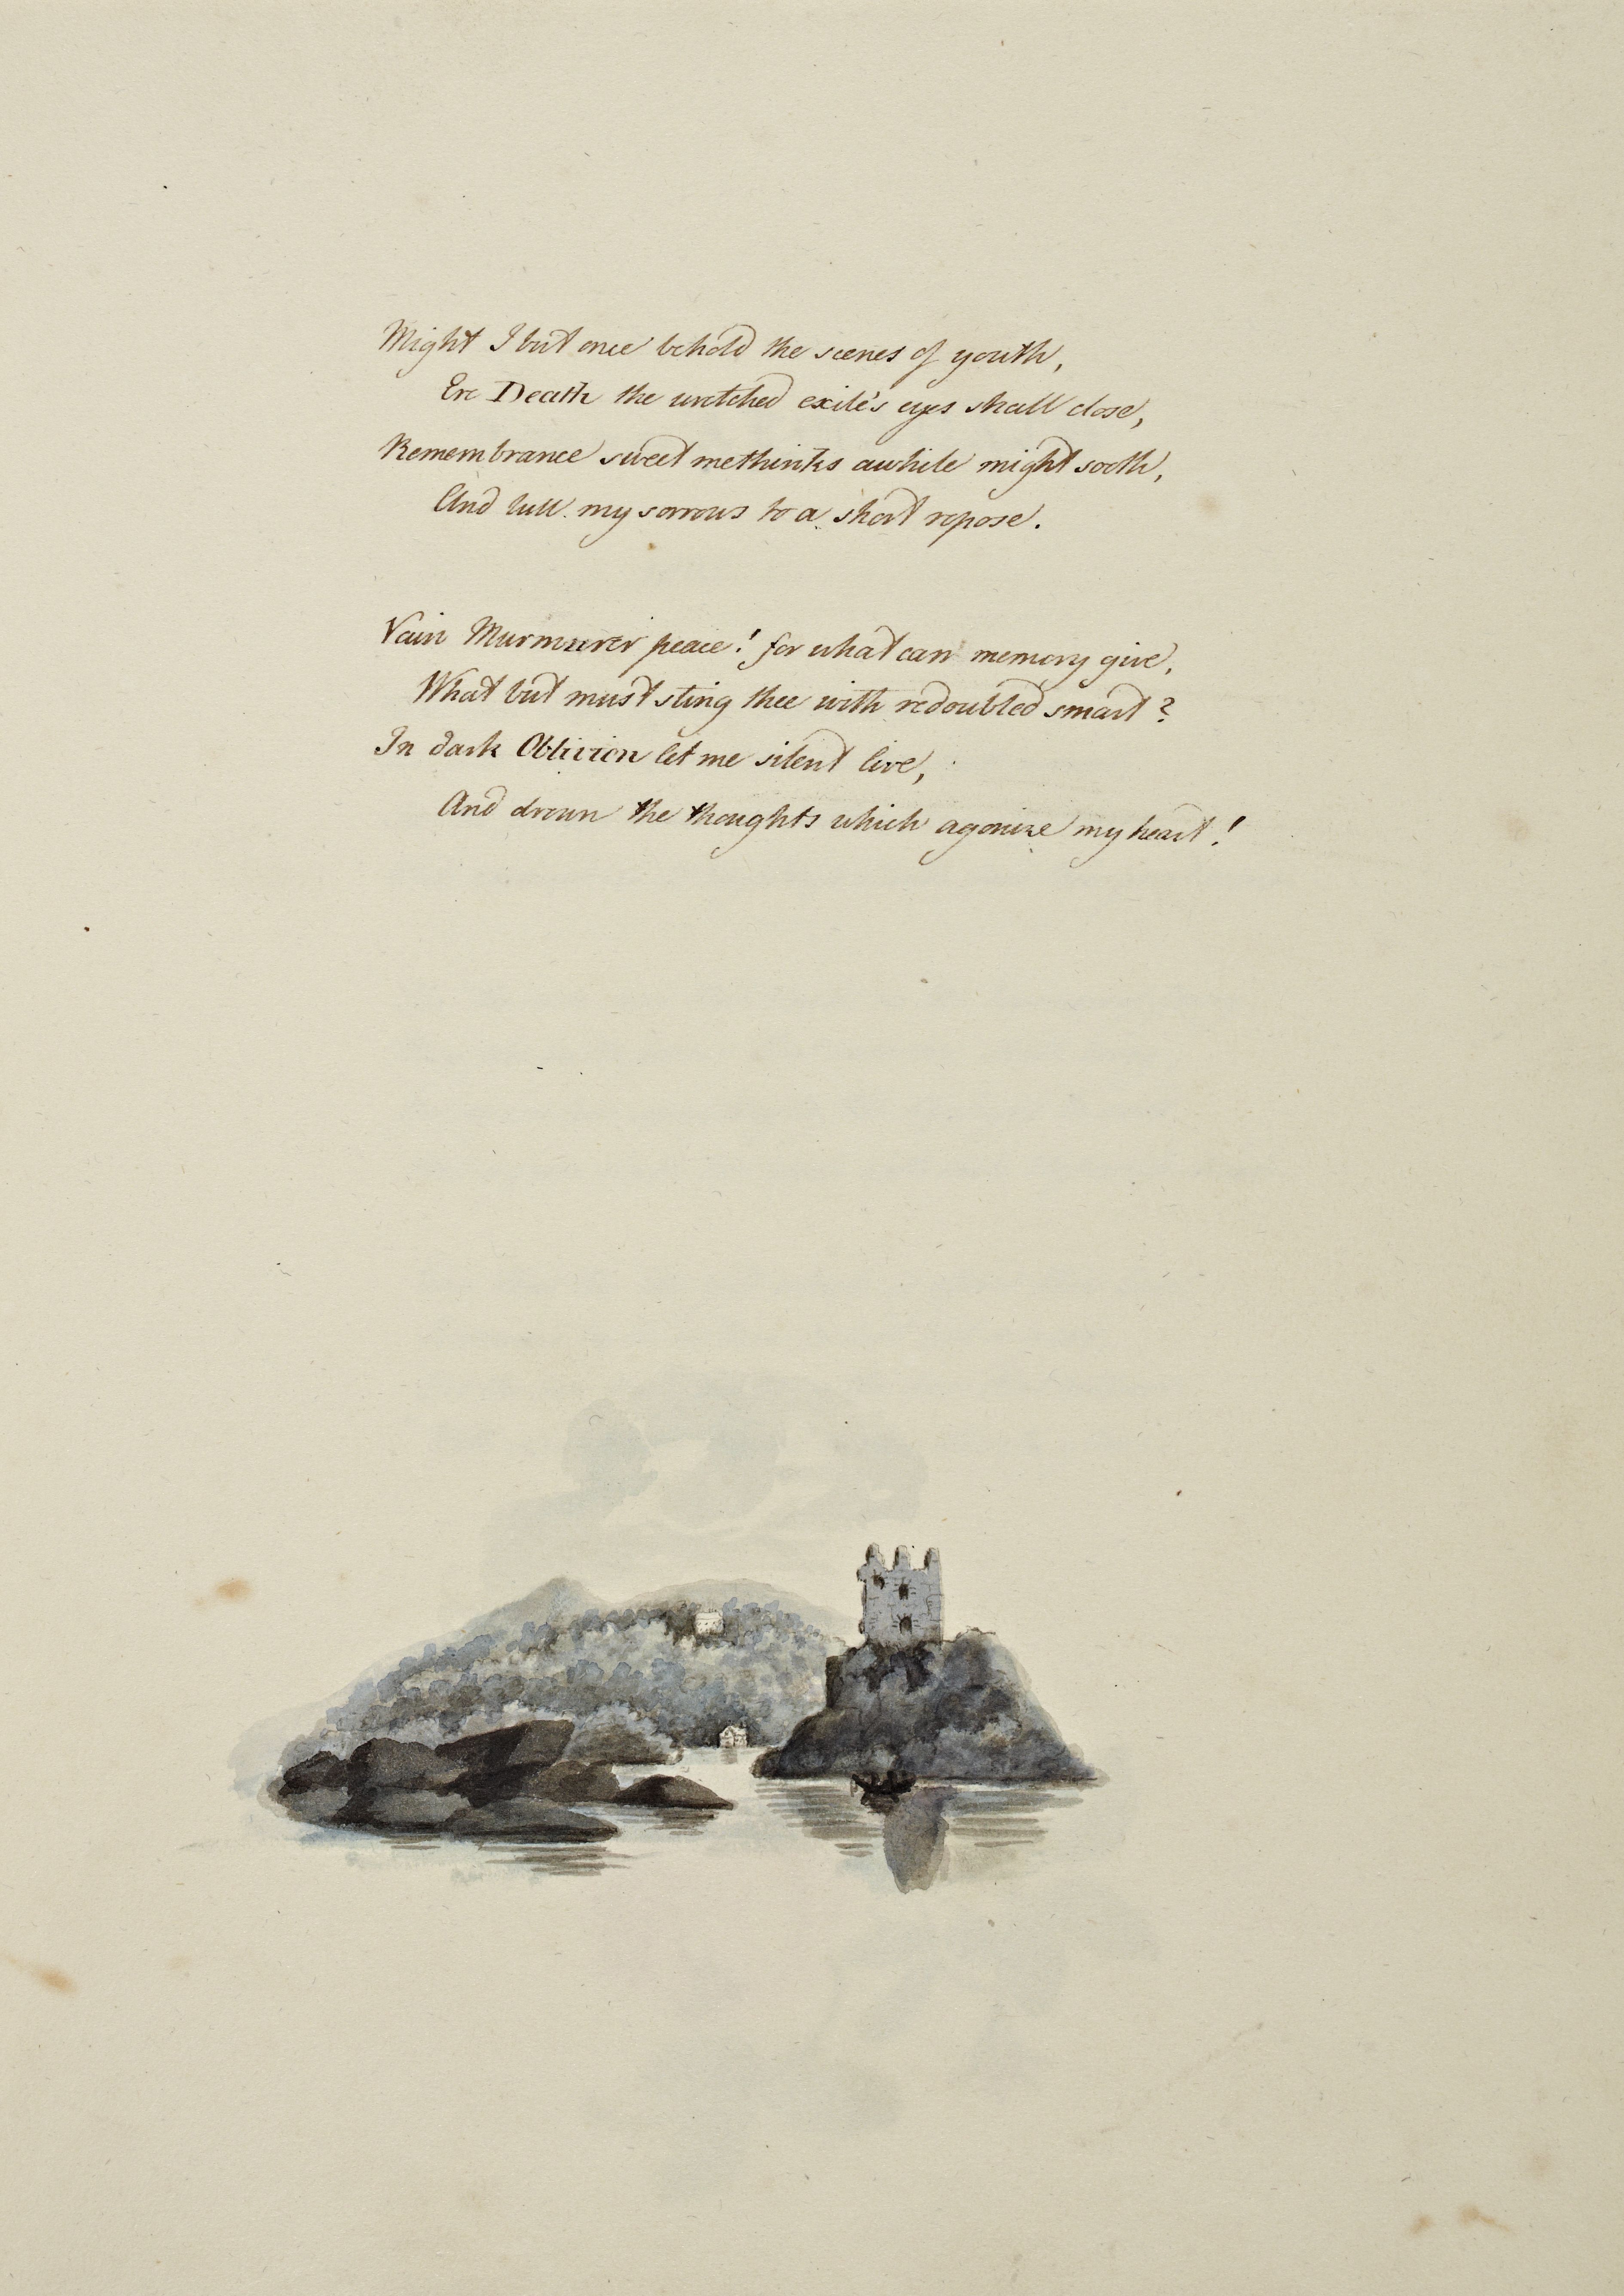 Might I but once behold the scenes of youth,
Ere Death the wretched exile's eyes shall close,
Remembrance sweet methinks awhile might sooth,
And lull my sorrows to a short repose.
Vain Murmurer peace! for what can memory give,
What but must sting thee with redoubled smart?
In dark Oblivion let me silent live,
And drown the thoughts which agonize my heart!